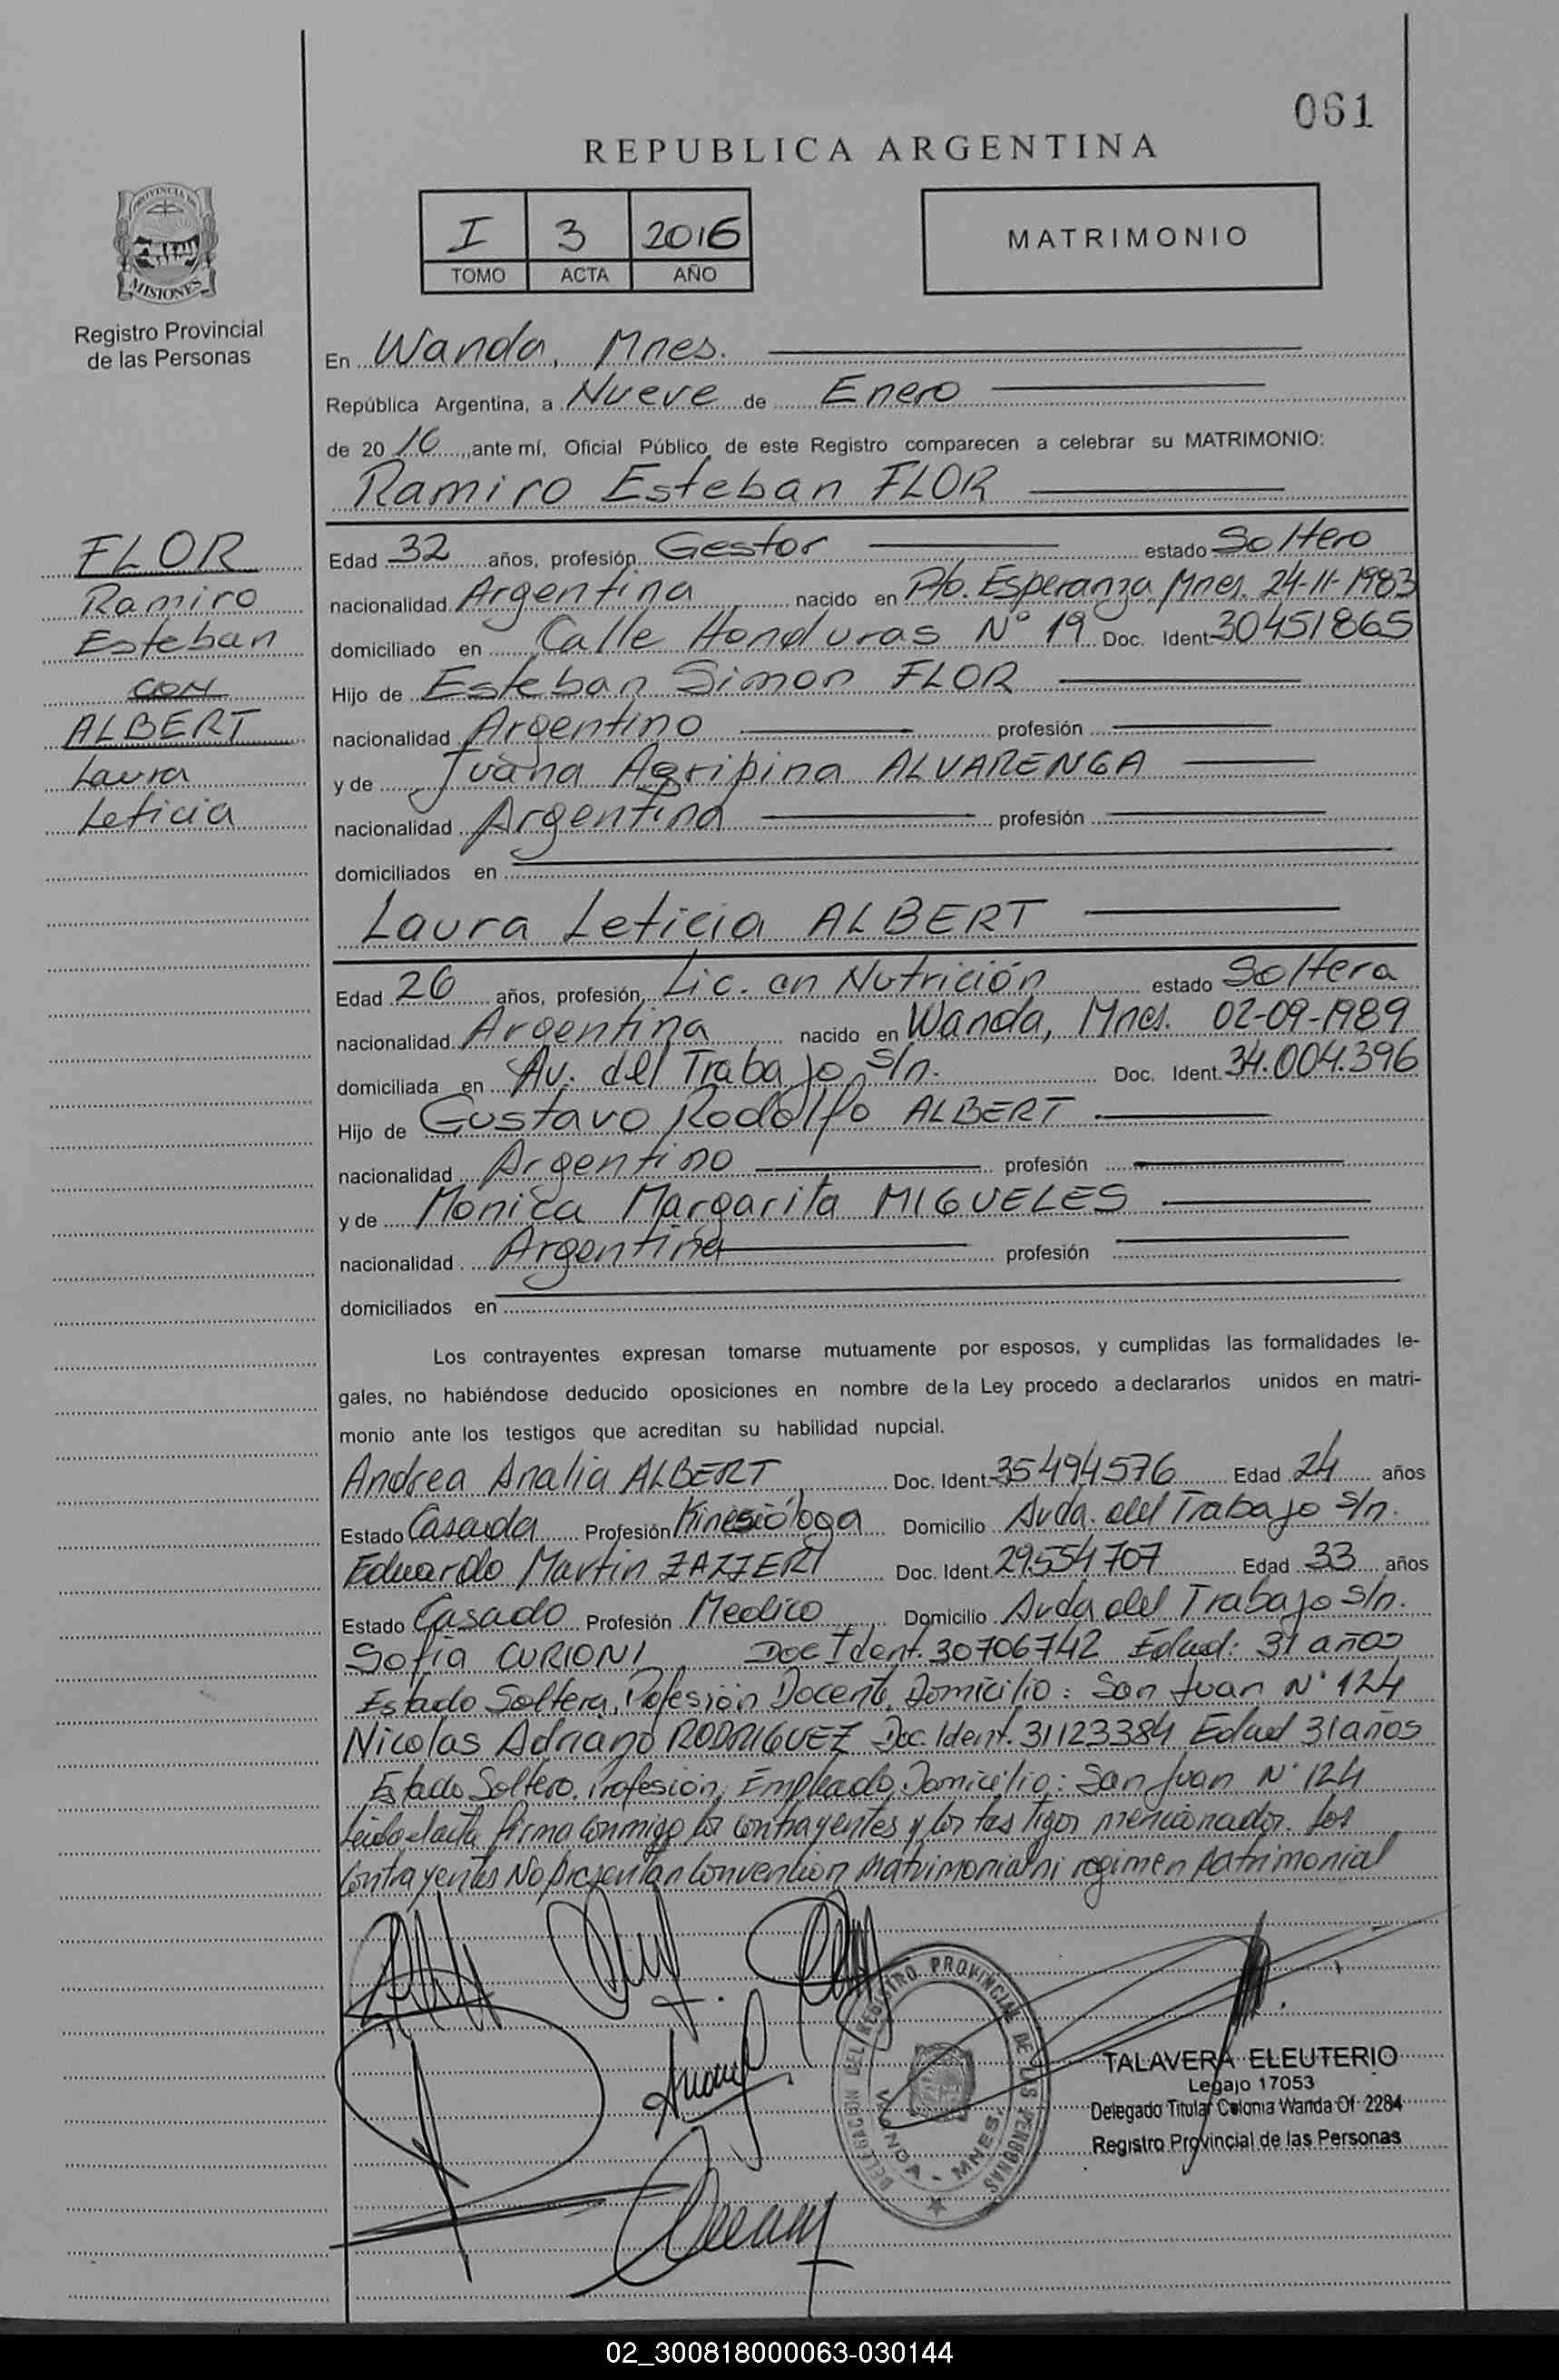 061
REPUBLICA ARGENTINA
I 3 2016
TOMO ACTA AÑO
MATRIMONIO
PROVINCIA DE
MISIONES
Registro Provincial
de las Personas
En Wanda, Mnes.
República Argentina, a Nueve de Enero
de 20 16 ante mí, Oficial Público de este Registro comparecen a celebrar su MATRIMONIO:
Ramiro Esteban FLOR
FLOR
Ramiro
Esteban
CON
ALBERT
Laura
Leticia
Edad 32 años, profesión Gestor estado Soltero
nacionalidad Argentina nacido en Pto. Esperanza Mnes. 24-11-1983
domiciliado en Calle Honduras N° 19 Doc. Ident. 30451865
Hijo de Esteban Simon FLOR
nacionalidad Argentino profesión
y de Juana Agripina ALVARENGA
nacionalidad Argentina profesión
domiciliados en
Laura Leticia ALBERT
Edad 26 años, profesión Lic. en Nutrición estado Soltera
nacionalidad Argentina nacido en Wanda, Mnes. 02-09-1989
domiciliada en Av. del Trabajo s/n. Doc. Ident. 34.004.396
Hijo de Gustavo Rodolfo ALBERT
nacionalidad Argentino profesión
y de Monica Margarita MIGUELES
nacionalidad Argentina profesión
domiciliados en
Los contrayentes expresan tomarse mutuamente por esposos, y cumplidas las formalidades le-
gales, no habiéndose deducido oposiciones en nombre de la Ley procedo a declararlos unidos en matri-
monio ante los testigos que acreditan su habilidad nupcial.
Andrea Analia ALBERT Doc. Ident. 35494576 Edad 24 años
Estado Casada Profesión Kinesióloga Domicilio Avda. del Trabajo s/n.
Eduardo Martin ZAZZERI Doc. Ident. 29.554707 Edad 33 años
Estado Casado Profesión Medico Domicilio Avda del Trabajo s/n.
Sofía CURIONI Doc Ident. 30706742 Edad: 31 años
Estado Soltera, Profesión Docente, Domicilio: San Juan N° 124
Nicolas Adriano RODRIGUEZ Doc. Ident. 31123384 Edad 31 años
Estado Soltero. Profesión, Empleado, Domicilio: San Juan N° 124
Leida el acta firma conmigo los contrayentes y los testigos mencionados. Los
contrayentes No presentan convencion matrimonial ni regimen patrimonial
DELEGACION DEL REGISTRO PROVINCIAL DE LAS PERSONAS
WANDA - MNES.
TALAVERA ELEUTERIO
Legajo 17053
Delegado Titular Colonia Wanda Of. 2284
Registro Provincial de las Personas
02_300818000063-030144